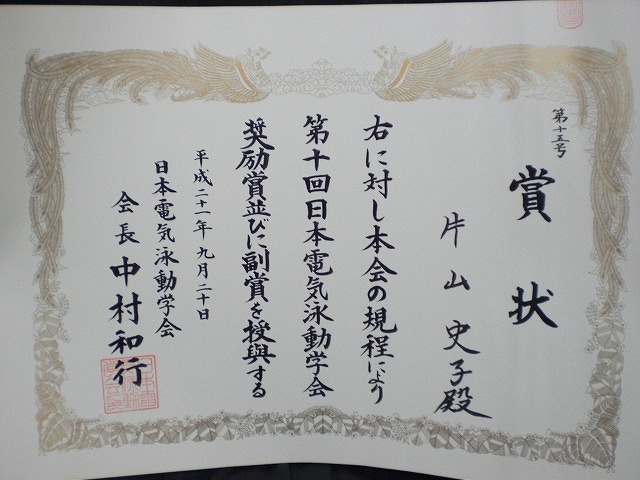 第十五号
賞状
片山史子殿
右に対し本会の規程により
第十回日本電気泳動学会
奨励賞並びに副賞を授與する
平成二十一年九月二十日
日本電気泳動学会
会長 中村和行